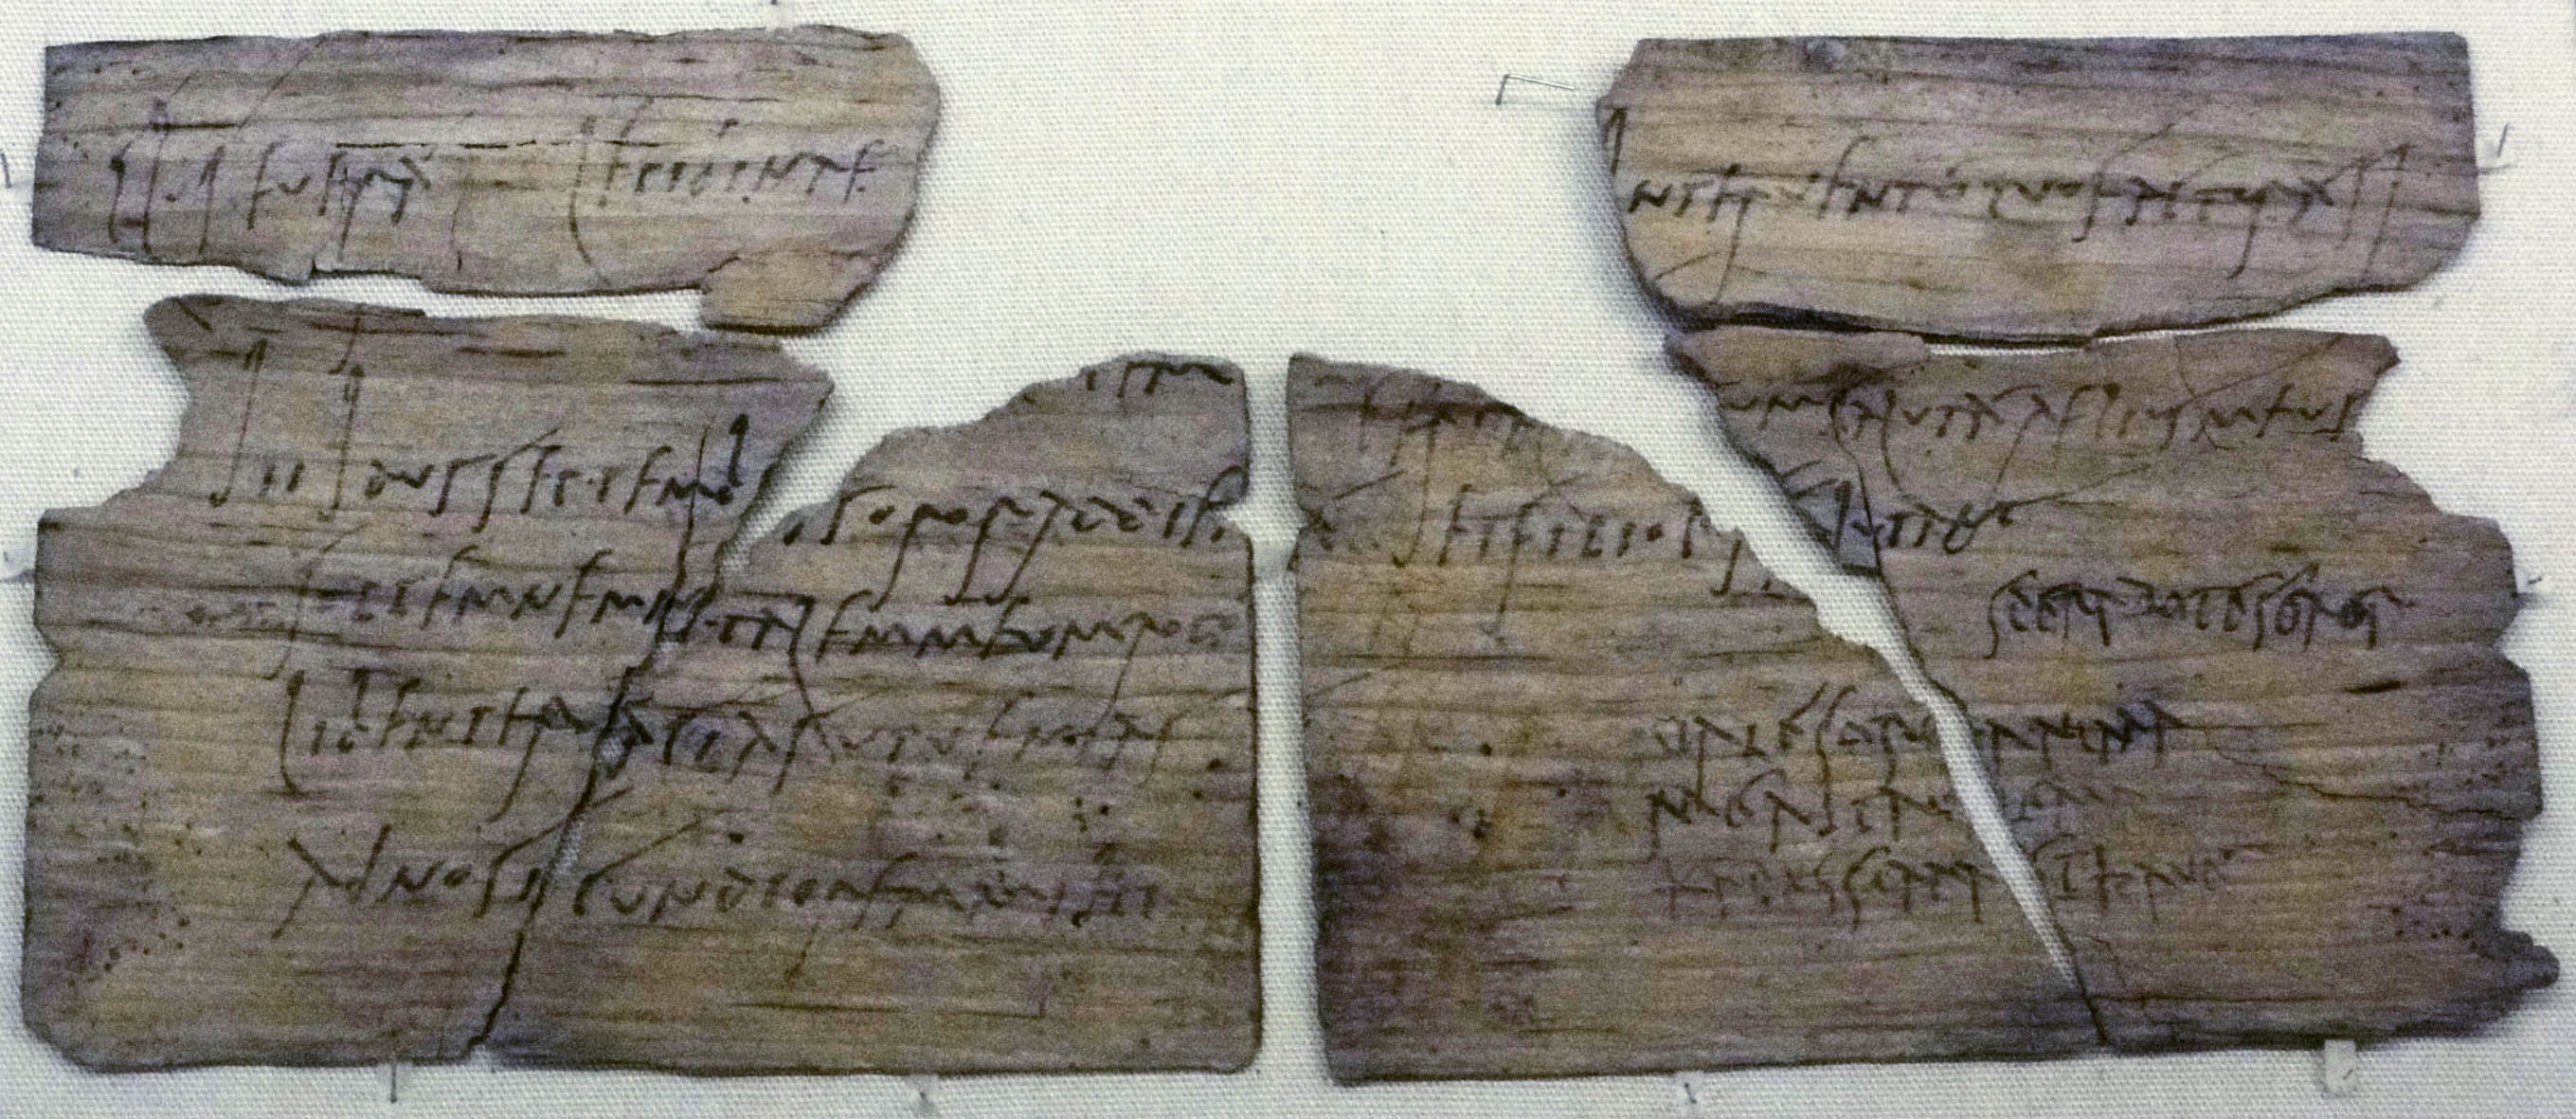 Cl Seuera Lepidinae
tem
iii Idus Septembr s soror ad diem
sollemnem natalem meum rogo
libenter facias ut uenias
ad nos iucundiorem mihi
interuentu tuo factura si
Cerial uum saluta Aelius meus
et filiolus salutant
sperabo te soror
uale soror anima
mea ita ualeam
karissima et haue